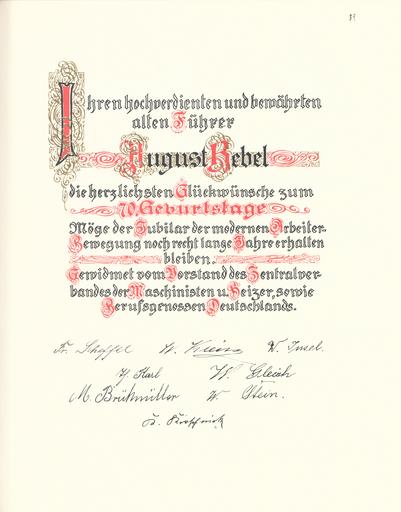 89
Ihren hochverdienten und bewährten
alten Führer
August Bebel
die herzlichsten Glückwünsche zum
70. Geburtstage
Möge der Jubilar der modernen Arbeiter-
Bewegung noch recht lange Jahre erhalten
bleiben.
Gewidmet vom Vorstand des Zentralver-
bandes der Maschinisten u. Heizer, sowie
Berufsgenossen Deutschlands.
Fr. Scheffel W. Insel.
Karl W. Gleich
M. Brükmüller W. Stein.